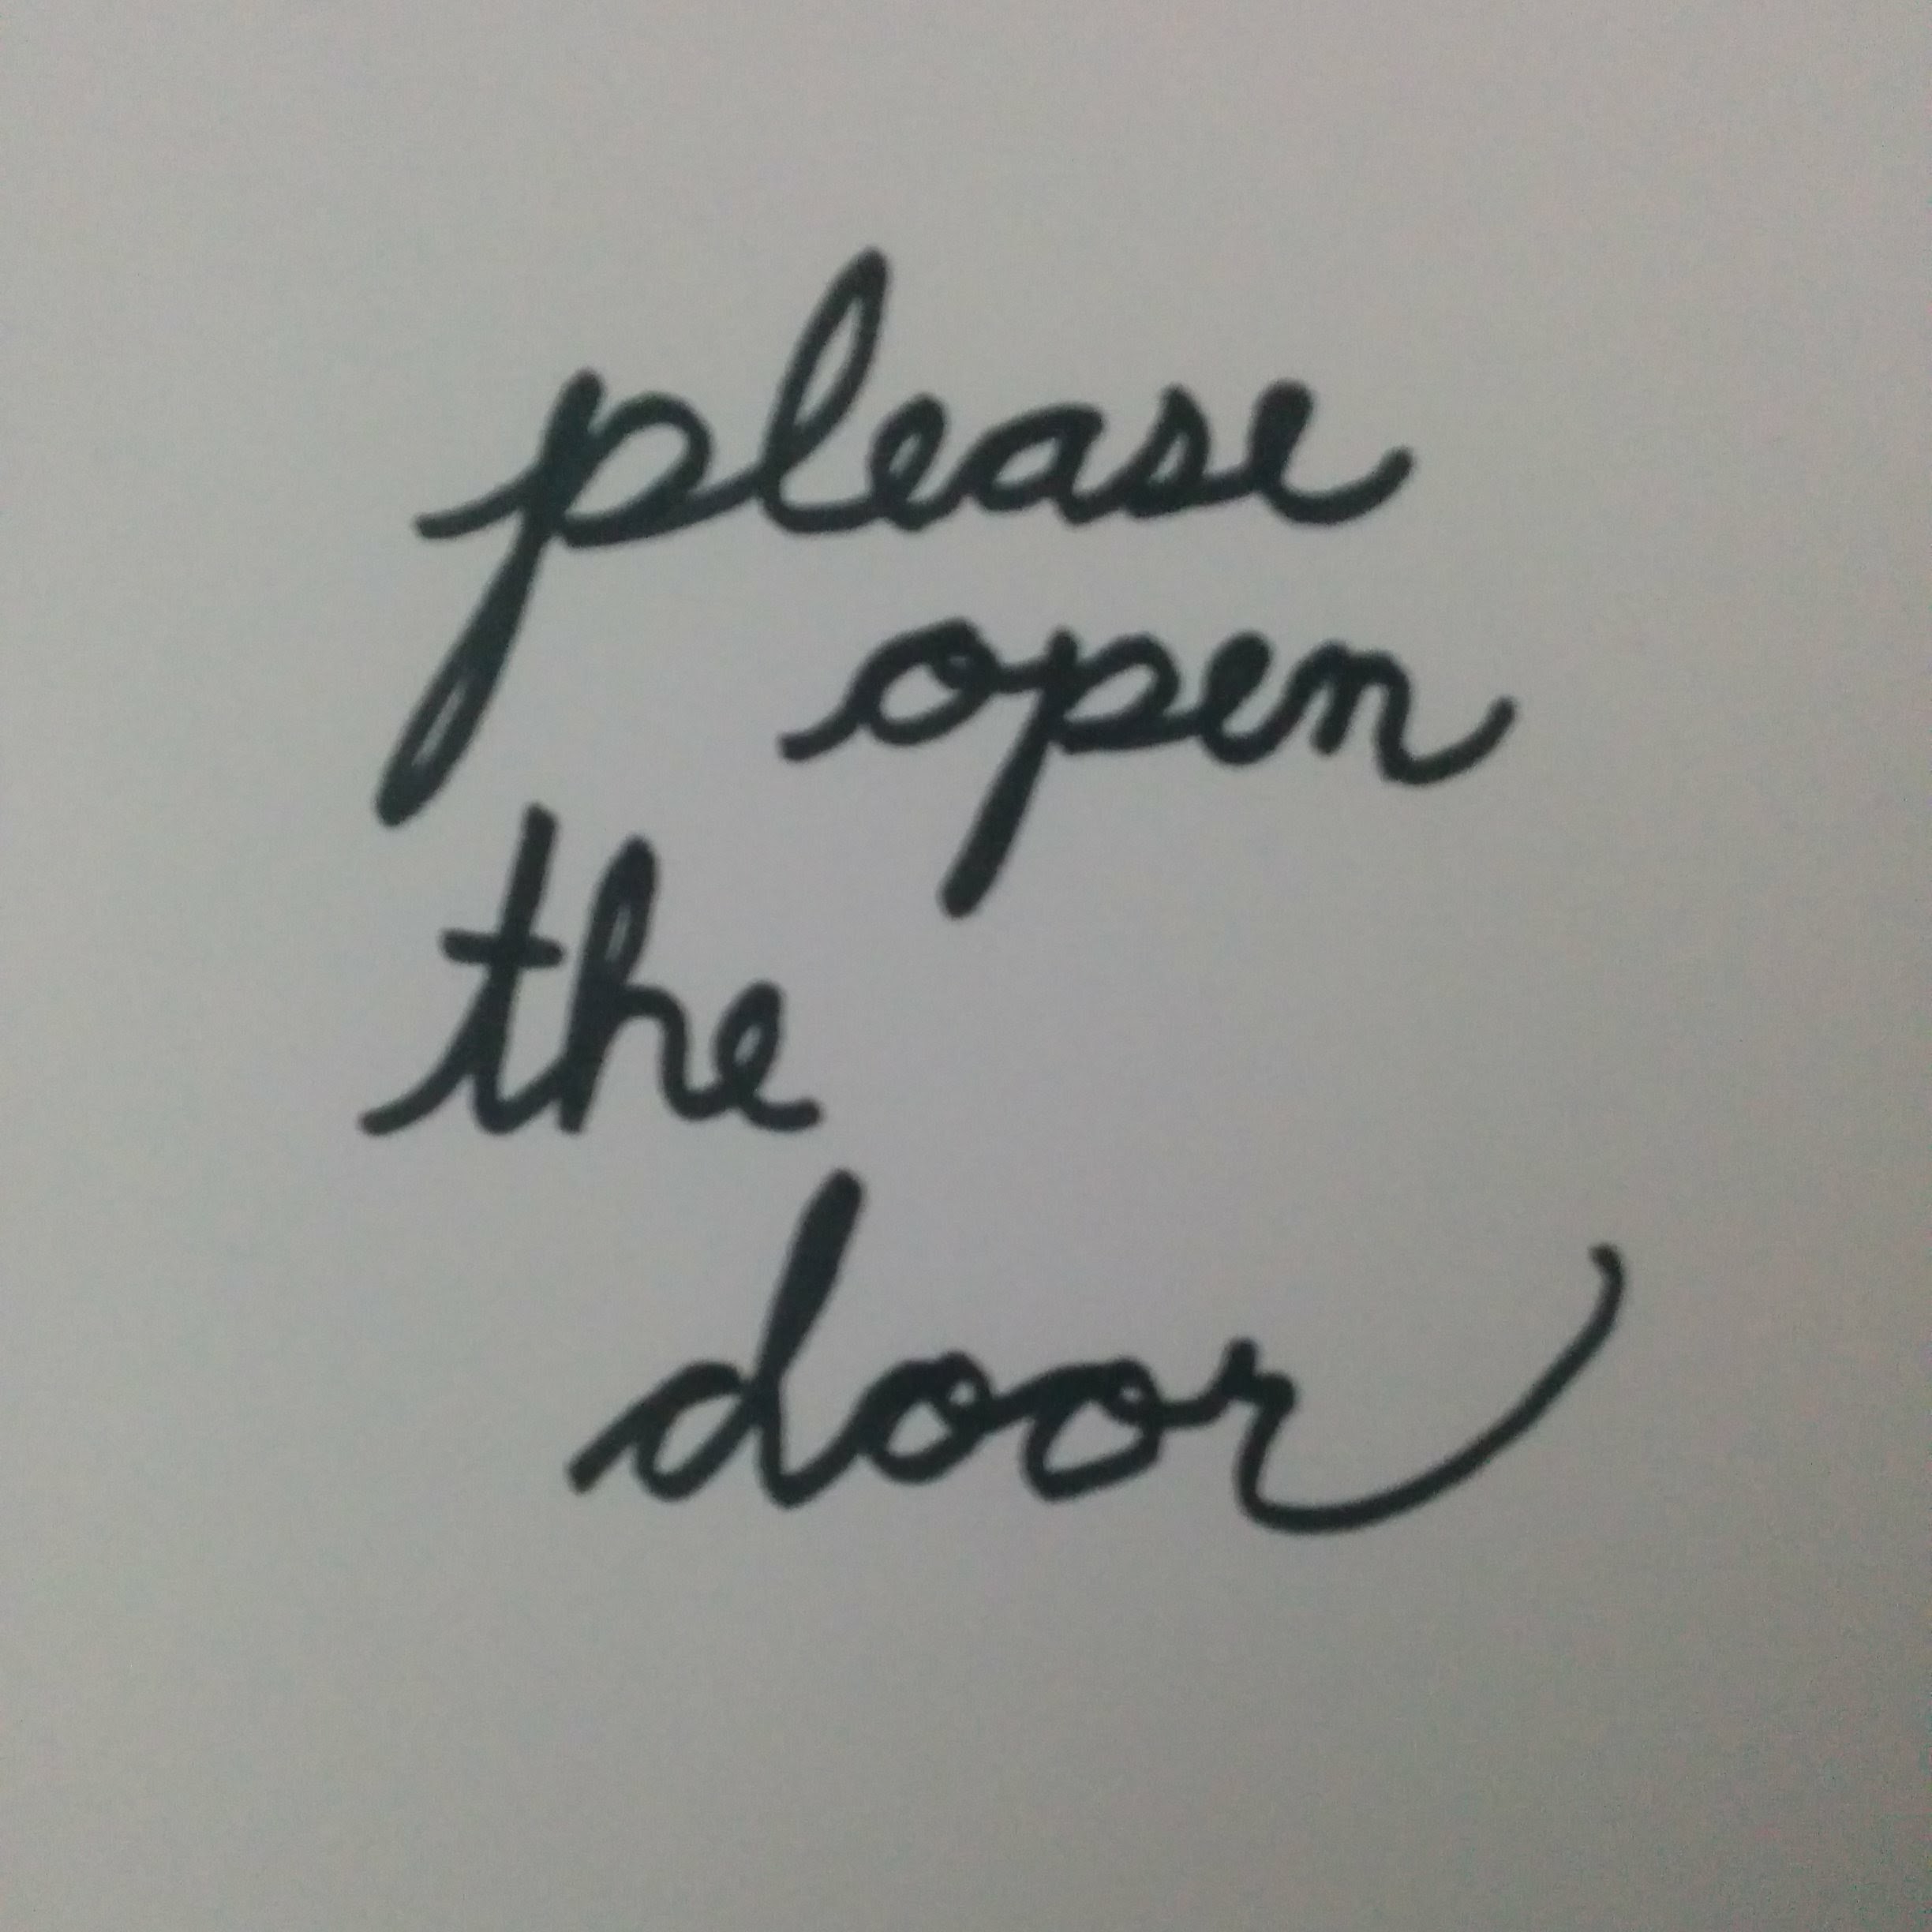 please
open
the
door